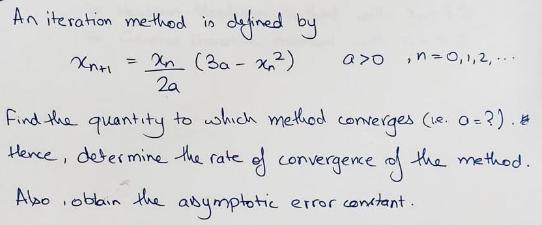 An iteration method is defined by
xₙ₊₁ = xₙ/2a (3a - xₙ²) a>0 , n=0,1,2,...
Find the quantity to which method converges (ie. a=?).
Hence, determine the rate of convergence of the method.
Also, obtain the asymptotic error constant.